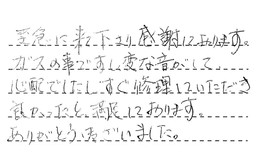 至急に来て下さり感謝しております。
ガスの事ですし変な音がして
心配でしたしすぐ修理していただき
良かったと満足しております。
ありがとうございました。